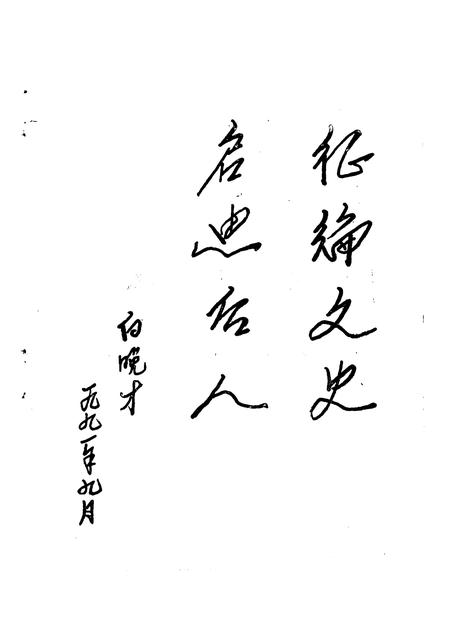 征编文史
启思后人
白晚才
一九九一年九月